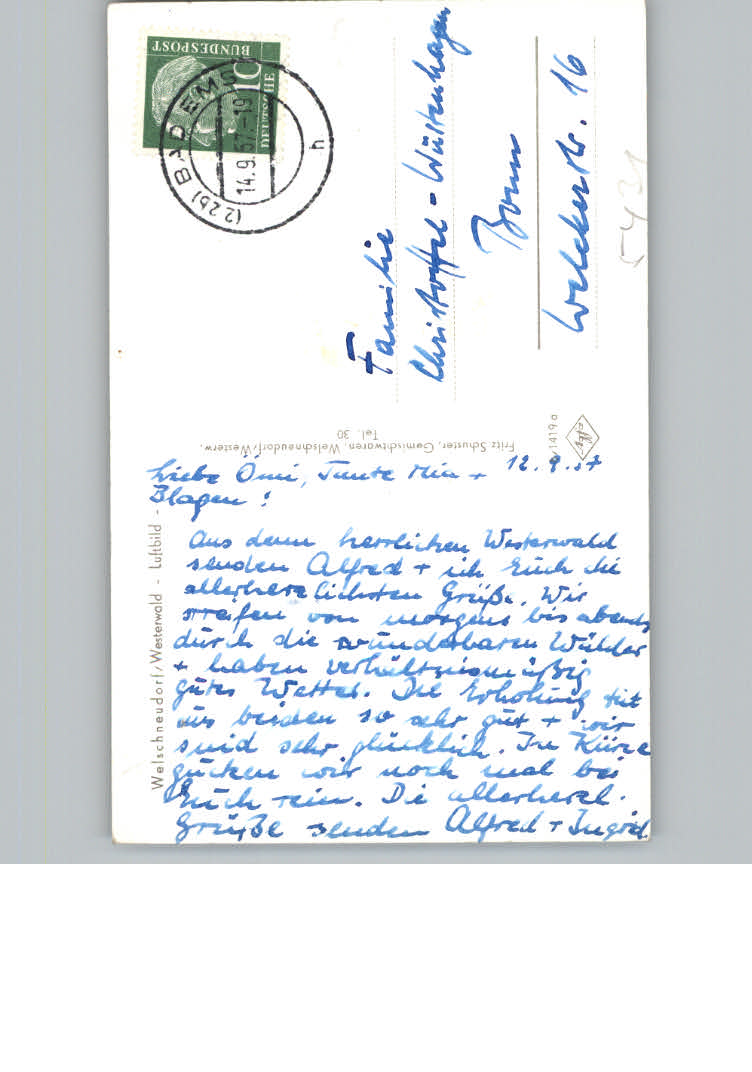 DEUTSCHE
BUNDESPOST
10
(22b) BAD EMS
14.9.57.-19
h
Familie
Christoffel-Wüstenhagen
Bonn
Welckerstr. 16
5431
Fritz Schuster, Gemischtwaren, Welschneudorf/Westerw.
Tel. 30
1419 a
Welschneudorf/Westerwald - Luftbild -
12.9.57
Liebe Omi, Tante Mia +
Blagen!
Aus dem herrlichen Westerwald
senden Alfred + ich Euch die
allerherzlichsten Grüße. Wir
streifen von morgens bis abends
durch die wunderbaren Wälder
+ haben verhältnismäßig
gutes Wetter. Die Erholung tut
uns beiden so sehr gut + wir
sind sehr glücklich. In Kürze
gucken wir noch mal bei
Euch rein. Die allerherzl.
Grüße senden Alfred + Ingrid